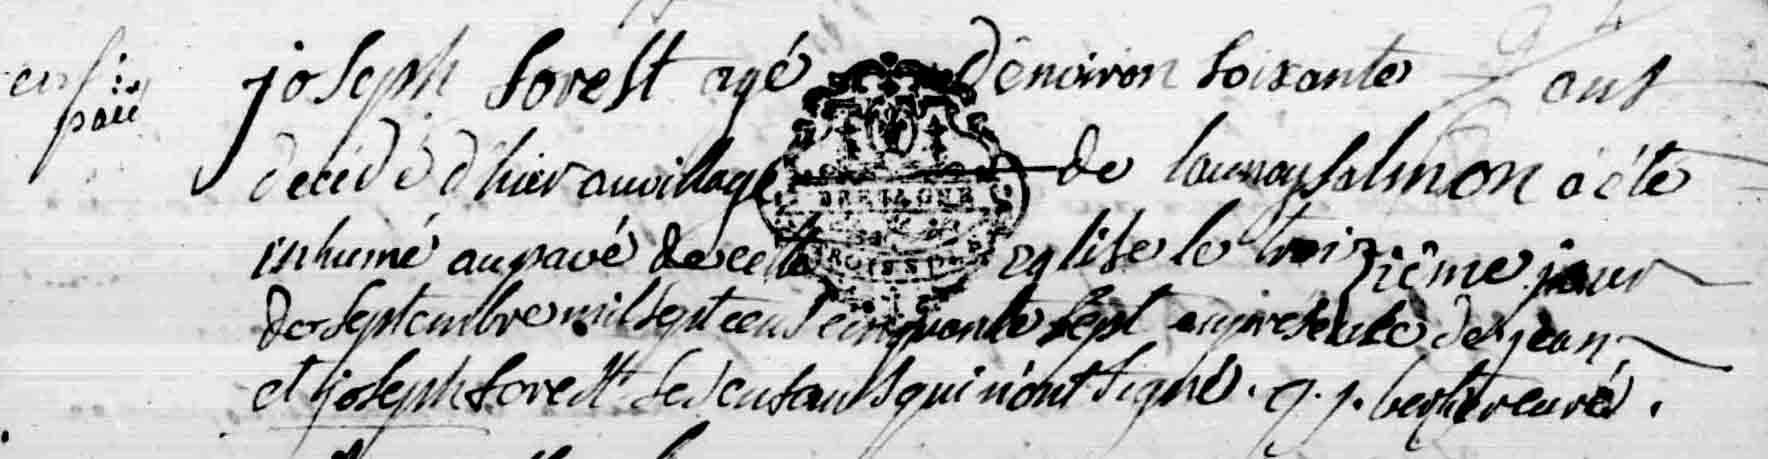 joseph forest agé d'environ soixante ans
decédé d'hier au village de launay salmon a été
inhumé au pavé de cette eglise le troizième jour
de septembre mil sept cens cinquante sept en presence de jean
et joseph forest ses enfans qui n'ont signé.
BRETAGNE